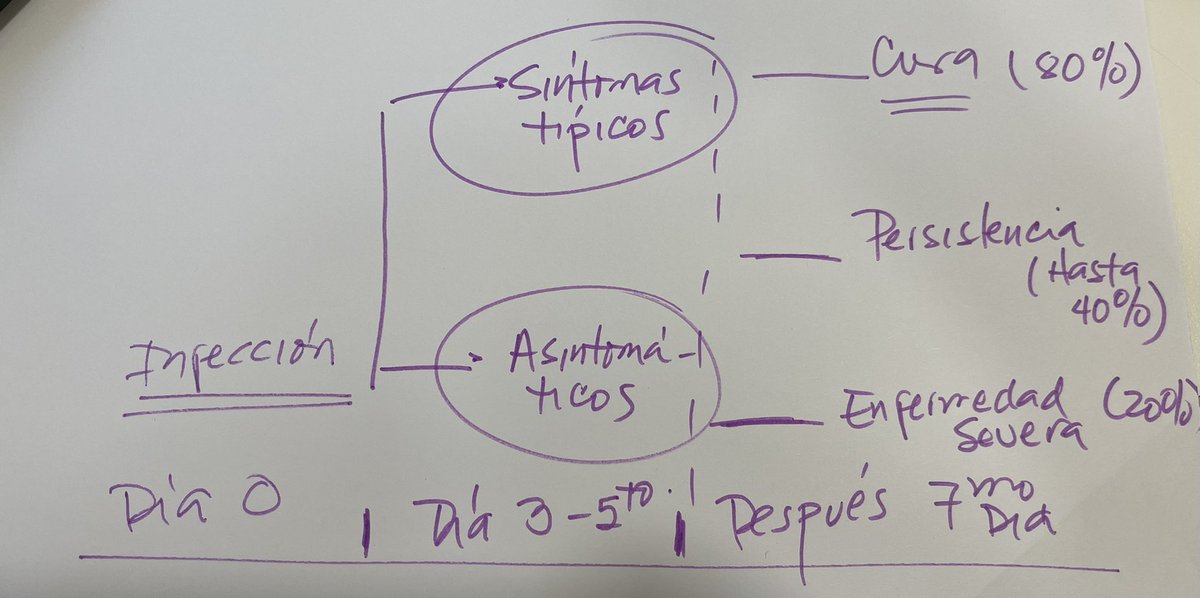 Síntomas
típicos
Cura (80%)
Persistencia
(Hasta
40%)
Infección
Asintomá-
ticos
Enfermedad (20%)
Severa
Día 0
Día 3-5to.
Después 7mo
Día